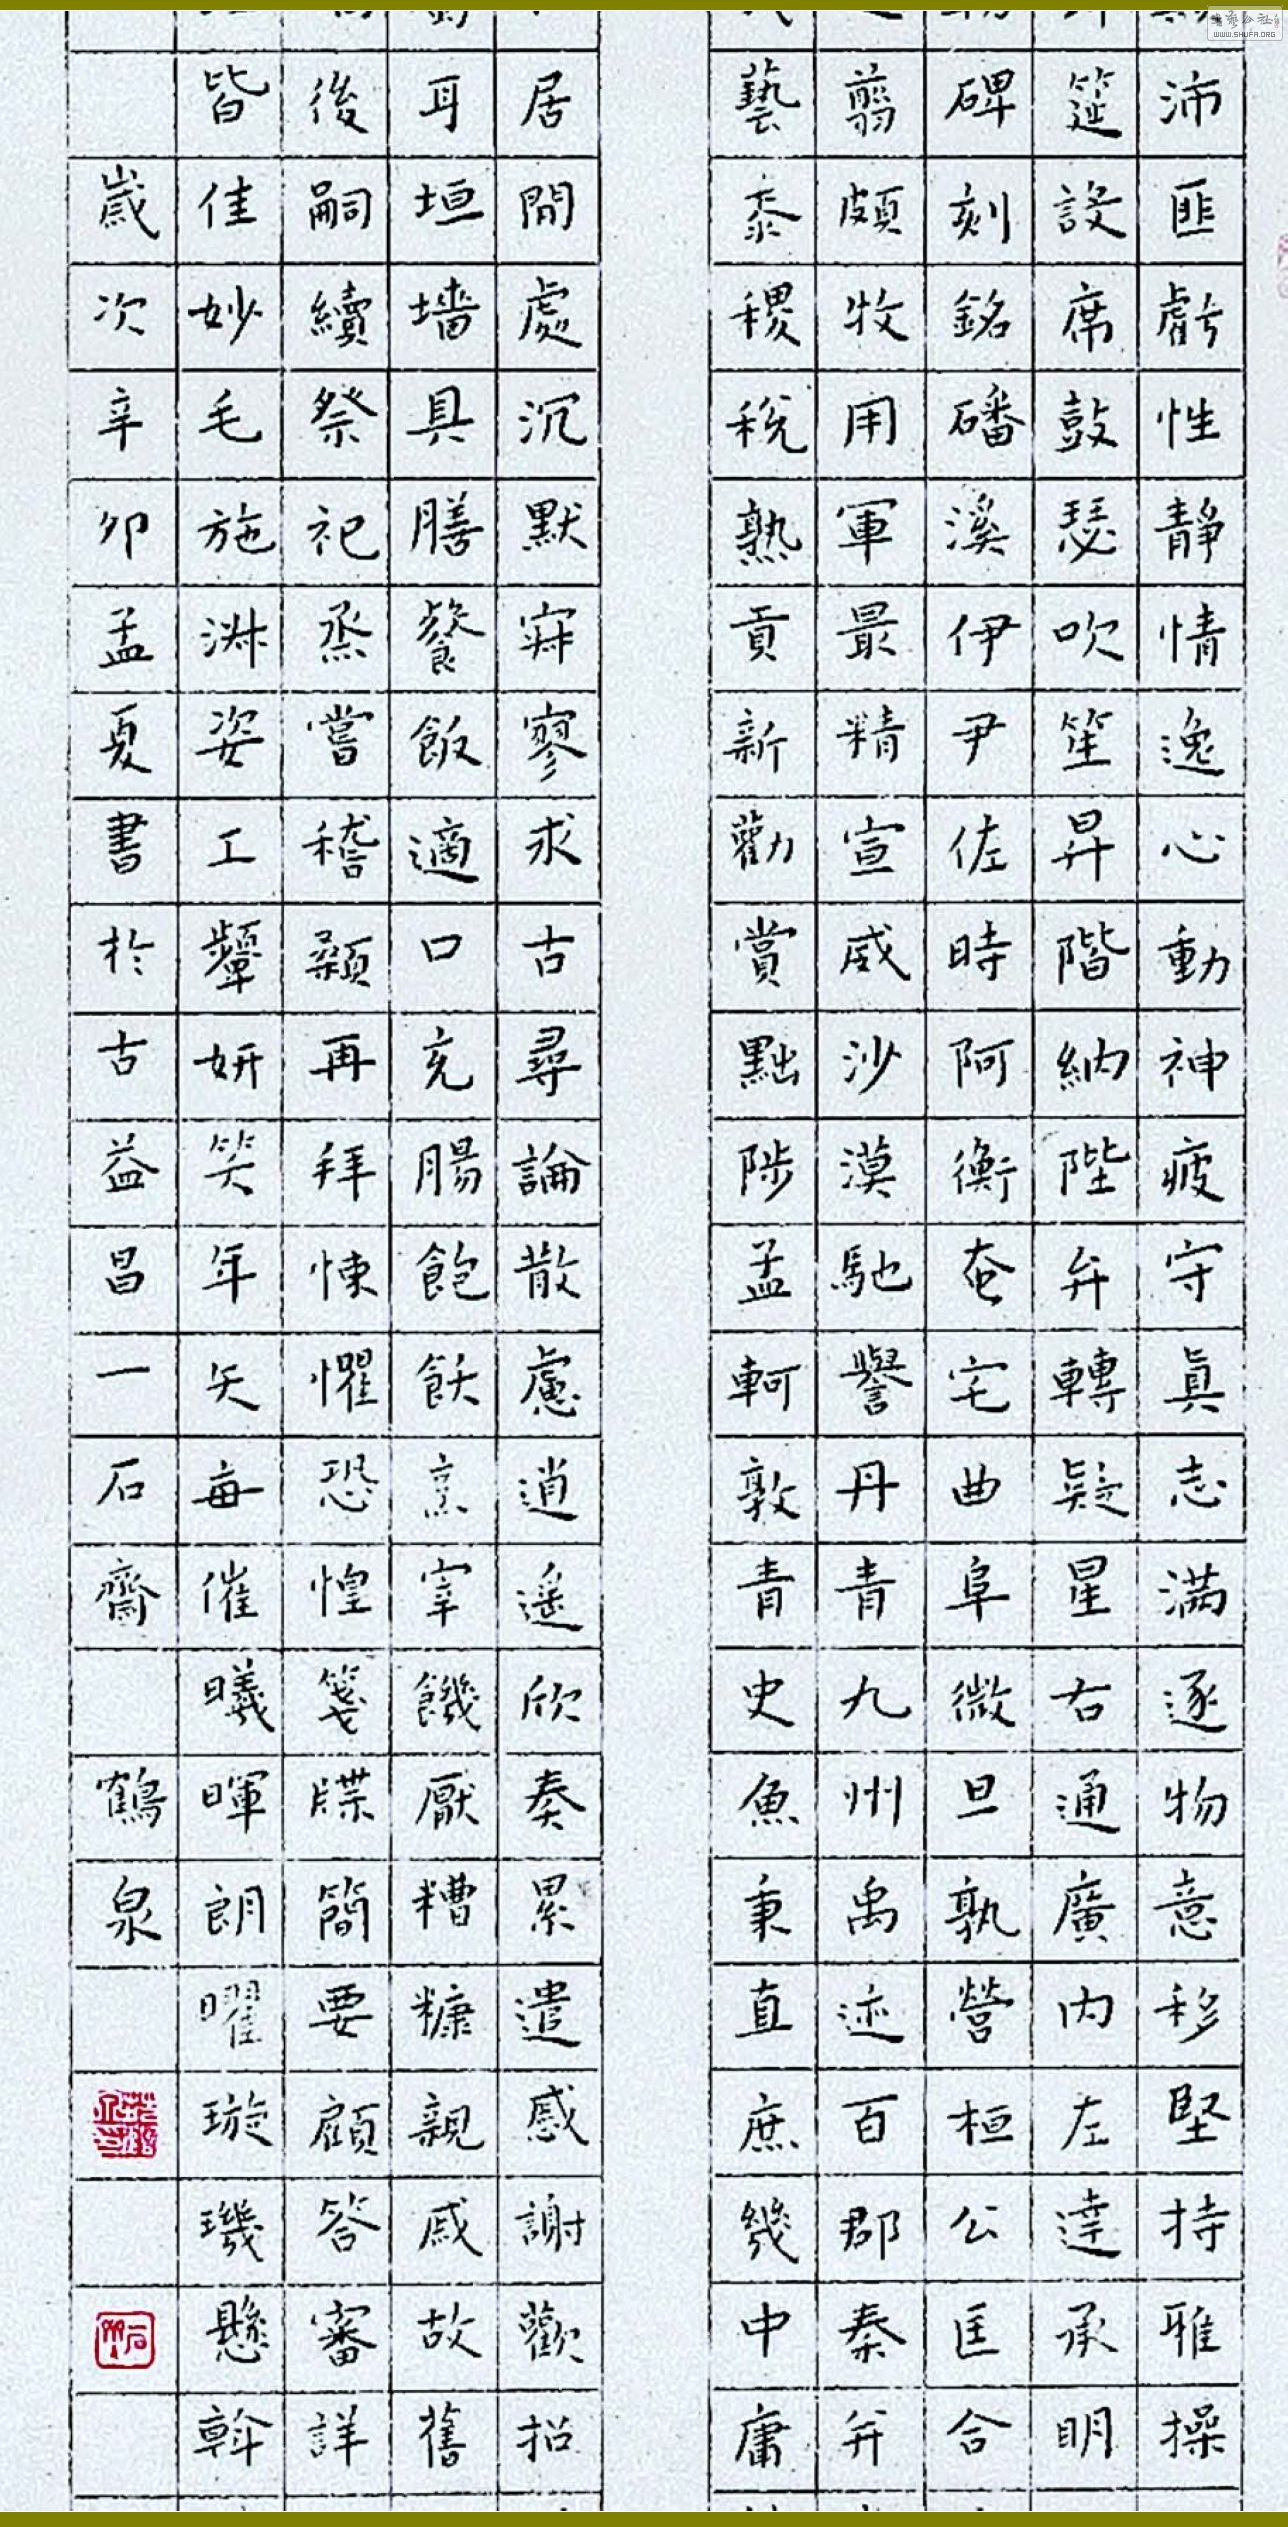 沛匪虧性靜情逸心動神疲守真志满逐物意移堅持雅操
筵設席鼓瑟吹笙昇階納陛弁轉疑星右通廣内左達承明
碑刻銘磻溪伊尹佐時阿衡奄宅曲阜微旦孰營桓公匡合
翦頗牧用軍最精宣威沙漠馳譽丹青九州禹迹百郡秦并
藝黍稷稅熟貢新勸賞黜陟孟軻敦青史魚秉直庶幾中庸
居閒處沉默寂寥求古尋論散慮逍遥欣奏累遣慼謝歡招
耳垣墻具膳餐飯適口充腸飽飫烹宰饑厭糟糠親戚故舊
後嗣續祭祀烝嘗稽顙再拜悚懼恐惶箋牒簡要顧答審詳
皆佳妙毛施淑姿工顰妍笑年矢每催曦暉朗曜璇璣懸斡
歲次辛卯孟夏書於古益昌一石齋 鶴泉
WWW.SHUFA.ORG